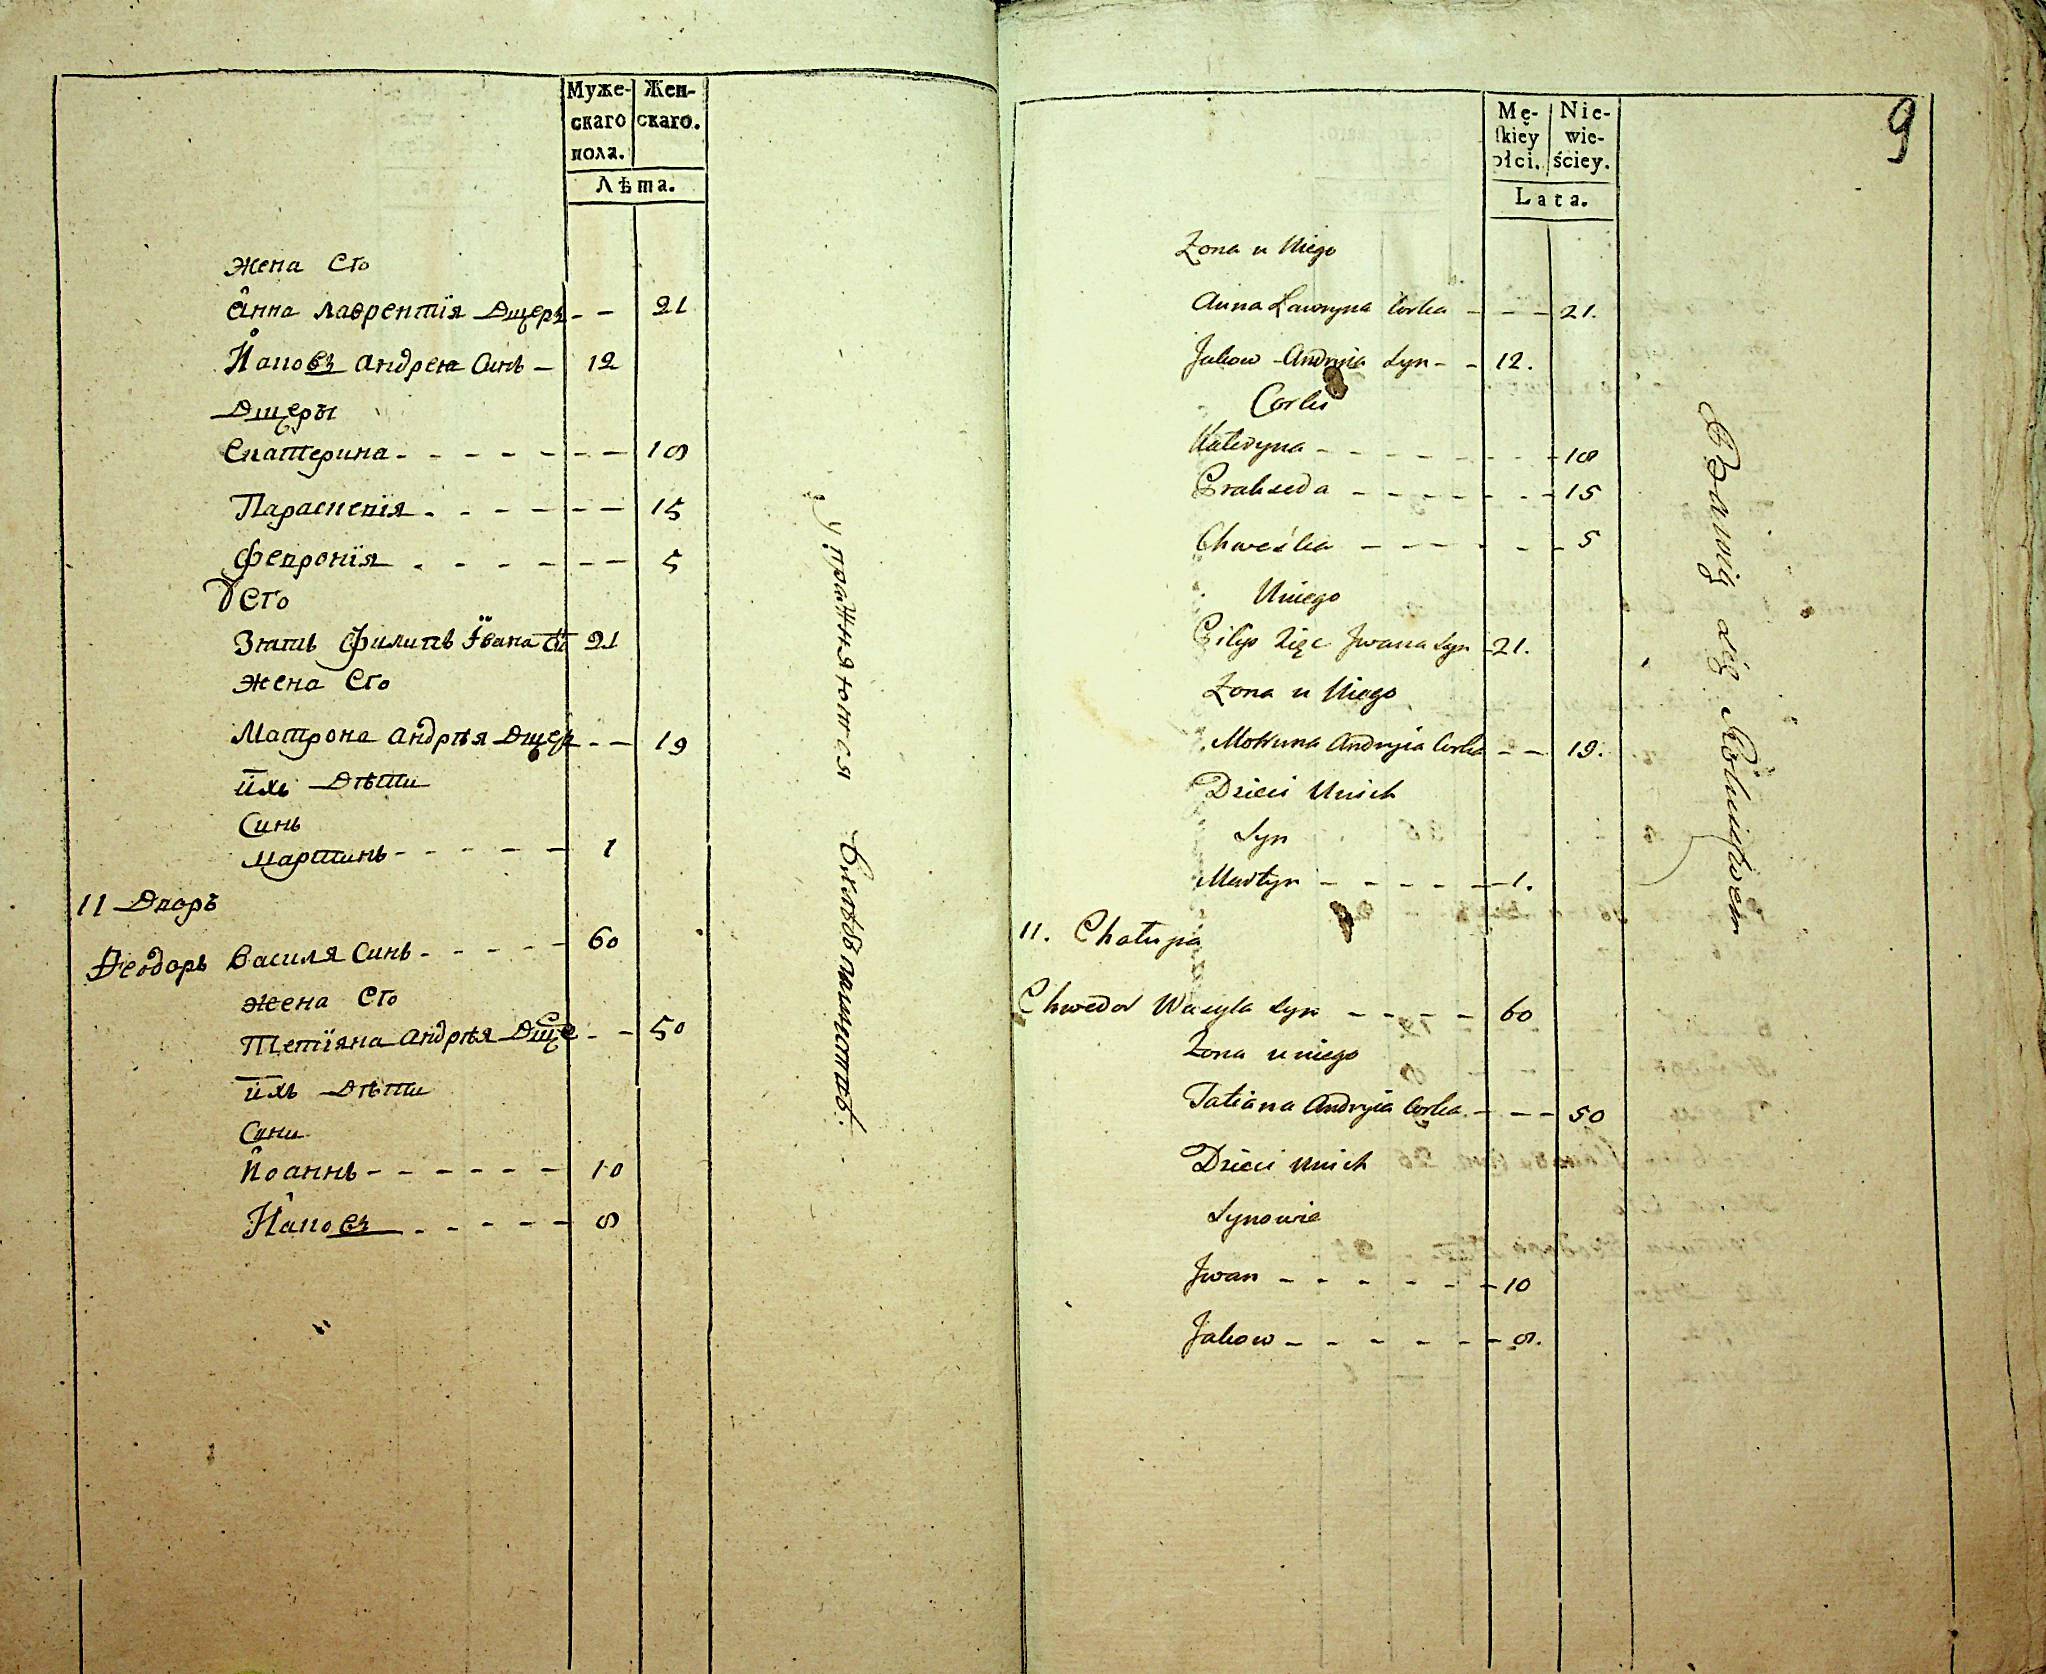 Муже-
скаго
пола.
Жен-
скаго.
Лѣта.
Жена Его
Анна Лаврентїя Дщеръ - - 21
Їаковъ Андрея Синъ - 12
Дщеры
Екатерина - - - - - - - 18
Параскевїя - - - - - - - 15
Февронїя - - - - - - - 5
У Его
Зять Филипъ Їѡвана Сн 21
Жена Его
Матрона Андрѣя Дщер - - 19
Ихъ Дѣти
Синъ
Мартинъ - - - - - 1
11 Дворъ
Ѳеодоръ Василя Синъ - - - - - 60
Жена Его
Тетїяна Андрѣя Дще - - 50
Ихъ Дѣти
Сини
Їоаннъ - - - - - - 10
Їаковъ - - - - - 8
Упражняются
Mę-
skiey
płci.
Nie-
wie-
ściey.
Lata.
9
Żona u Niego
Anna Ławryna Corka - - - 21.
Jakow Andryia Syn - - 12.
Corki
Kateryna - - - - - - - 18
Prakseda - - - - - - - 15
Chweśka - - - - - - 5
U niego
Pilip Zięc Jwana Syn - 21.
Żona u Niego
Motruna Andryia Corka - - 19.
Dzieci U nich
Syn
Martyn - - - - - 1.
11. Chałupa
Chwedor Wasyla Syn - - - - 60
Żona u niego
Tatiana Andryia Corka - - - 50
Dzieci u nich
Synowie
Jwan - - - - - - 10
Jakow - - - - - - 8.
Bawią się Rolnictwem